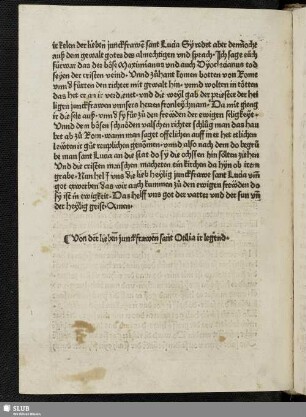 ir kelen der lieben junckfrawen sant Lucia Sy redet aber dennocht
auß dem gewalt gotes des almechtigen vnd sprach · Jch sage eüch
fürwar das der böß Maximianus vnd auch Dyocletianus tod
seyen der cristen veind · Vnnd zůhant komen botten von Rome
vnnd fürten den richter mit gewalt hin · vnnd wolten in tötten
das het er ver dienet · vnd die weyl gab der priester der hei
ligen junckfrawen vnnsers herren fronleychnam · Da mit gieng
ir die sele auß · vnnd für zů den freüden der ewigen säligkeyt ·
Vnnd dem bösen richter schlůg man das hau
bet ab zů Rom · wann man saget offenlichen auff in er het etlichen
leüten ir gůt genommen · vnnd also nach dem do begrůbe
man sant Lucia an die stat do sy die ochssen hin solten ziehen
Vnd die cristen machten ein kirchen da hin ob irem
grabe · Nun helf vns die lieb heylig junckfrawe sant Lucia vmb
got erwerben das wir auch kummen zů den ewigen freüden do
sy ist in ewigkeit · Das helff vns got der vatter vnd der sun vnd
der heylig geist · Amen ·
¶ Von der lieben junckfrawen sant Otilia ir legend ·
SLUB